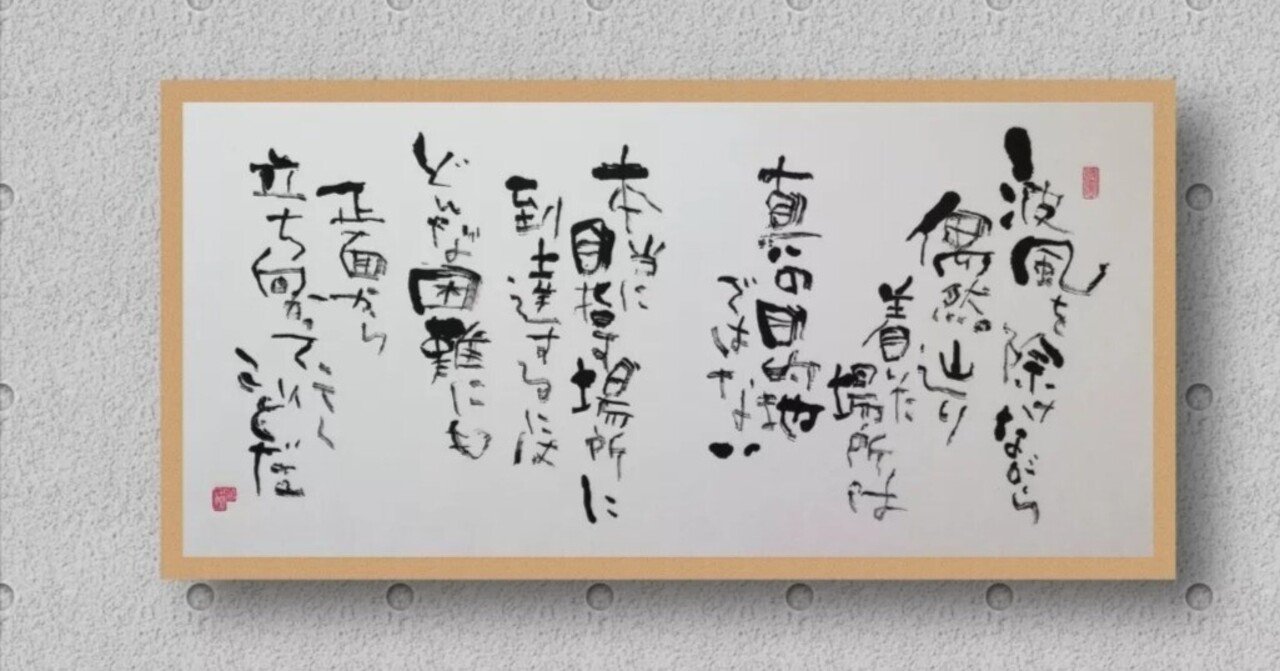 波風を除けながら
偶然辿り
着いた
場所は
真の目的地
ではない
本当に
目指す場所に
到達するには
どんな困難にも
正面から
立ち向かって行く
ことだな